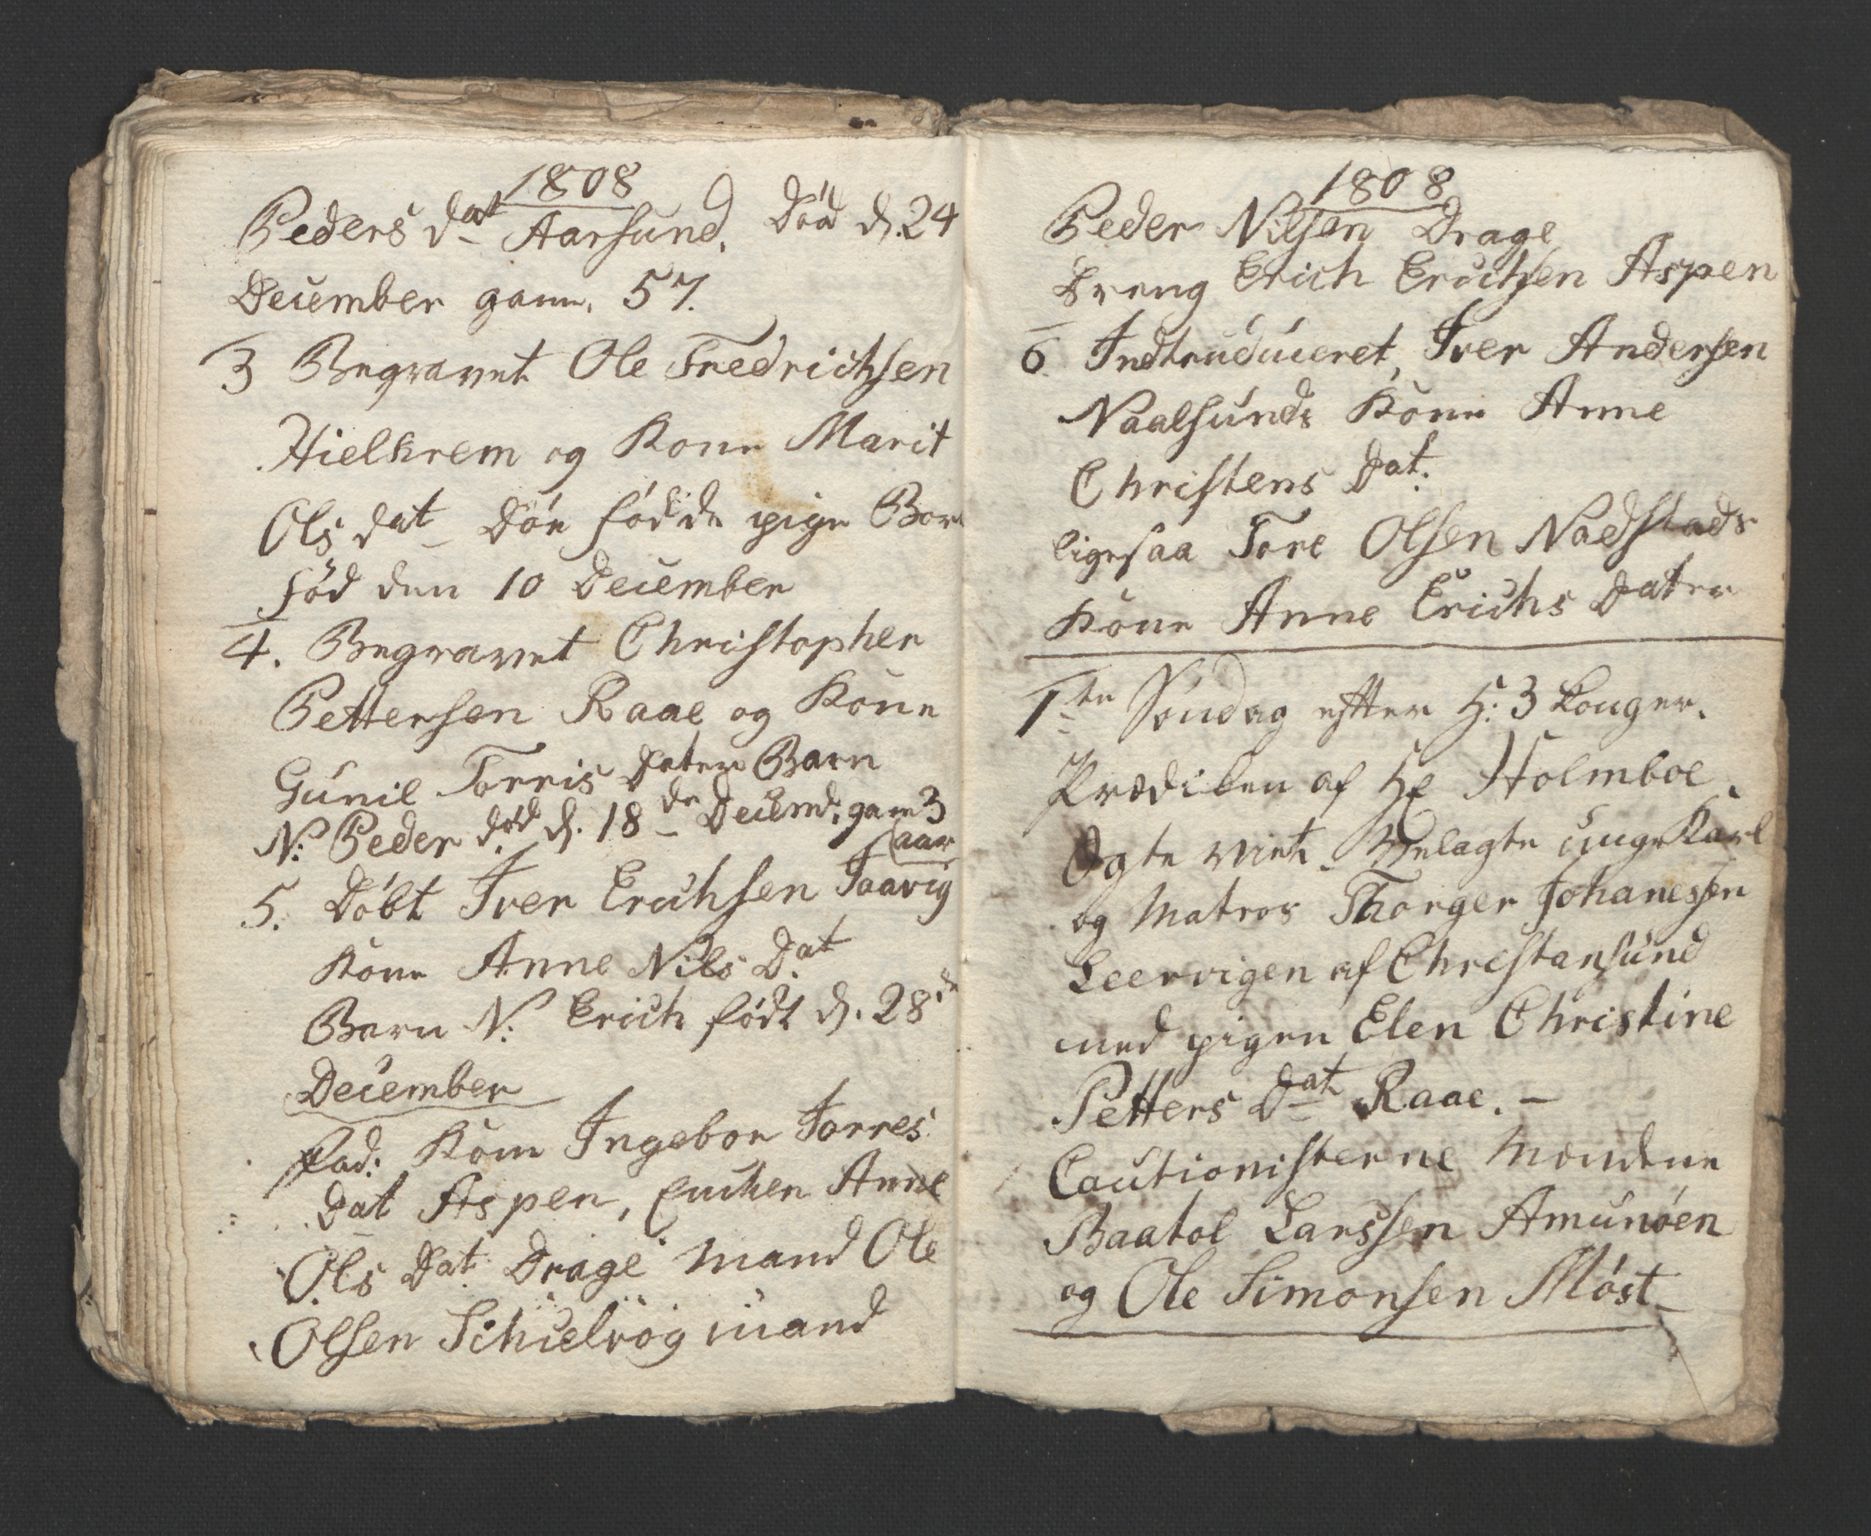 1808
Peders dat Aarsund. Død d. 24
December gam. 57.
3 Begravet Ole Fredrichsen
Hielkrem og Kone Marit
Ols dat Døe fødde pige Bar
Fød den 10 December
4. Begravet Christopher
Pettersen Raae og Kone
Gunil Torris Dater Barn
N: Peder død d. 18de Decemb: gam 3
aar
5. Døbt Iver Erichsen Taavig
Kone Anne Nils Dat
Barn N: Erich født d. 28de
December
Fad: Kone Ingebor Torres
Dat Aspen, Enchen Anne
Ols Dat Drage mand Ole
Olsen Schielvog mand
1808
Peder Nilsen Drage
Dreng Erich Erichsen Aspen
6 Indtruduceret, Iver Andersen
Naalsunds Kone Anne
Christens Dat:
ligesaa Tore Olsen Nadstads
Kone Anne Erichs Dater
1te Søndag efter H: 3 Konger.
Prædiken af Hr Holmboe.
Ægte viet. unge Karl
og Matros Thorger Johanessen
Leervigen af Christansund
med pigen Elen Christine
Petters Dat Raae. –
Cautionisterne Mændene
Baatol Larssen Amunøen
og Ole Simonsen Møst –